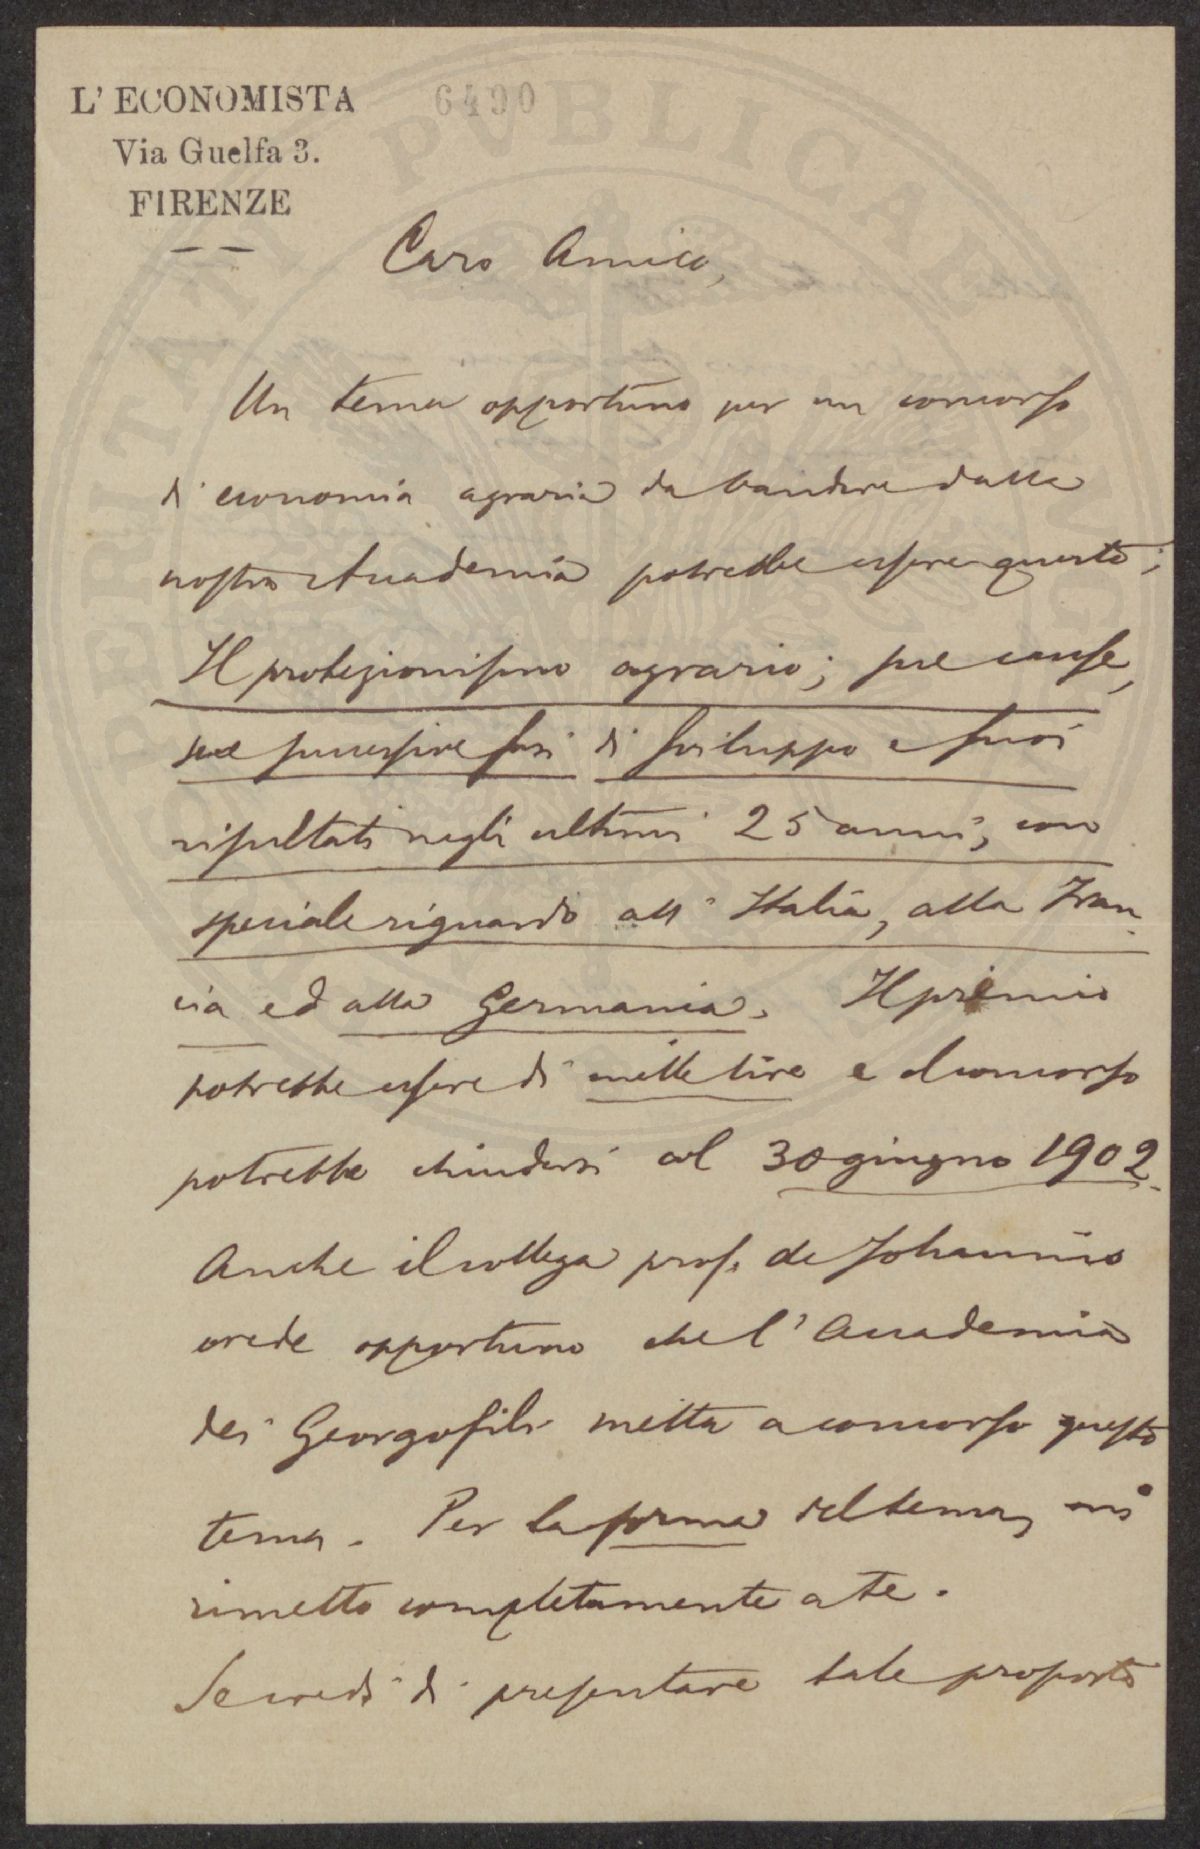 L' ECONOMISTA
6490
Via Guelfa 3.
FIRENZE
Caro Amico,
Un tema opportuno per un concorso
di economia agraria da bandire dalla
nostra Accademia potrebbe essere questo;
Il protezionismo agrario; sue cause,
sue successive fasi di sviluppo e suoi
risultati negli ultimi 25 anni, con
speciale riguardo all' Italia, alla Fran
cia ed alla Germania. Il premio
potrebbe essere di mille lire e il concorso
potrebbe chiudersi al 30 giugno 1902.
Anche il collega prof. de Johannis
crede opportuno che l' Accademia
dei Georgofili metta a concorso questo
tema. Per la forma del tema, mi
rimetto completamente a te.
Se credi di presentare tale proposta